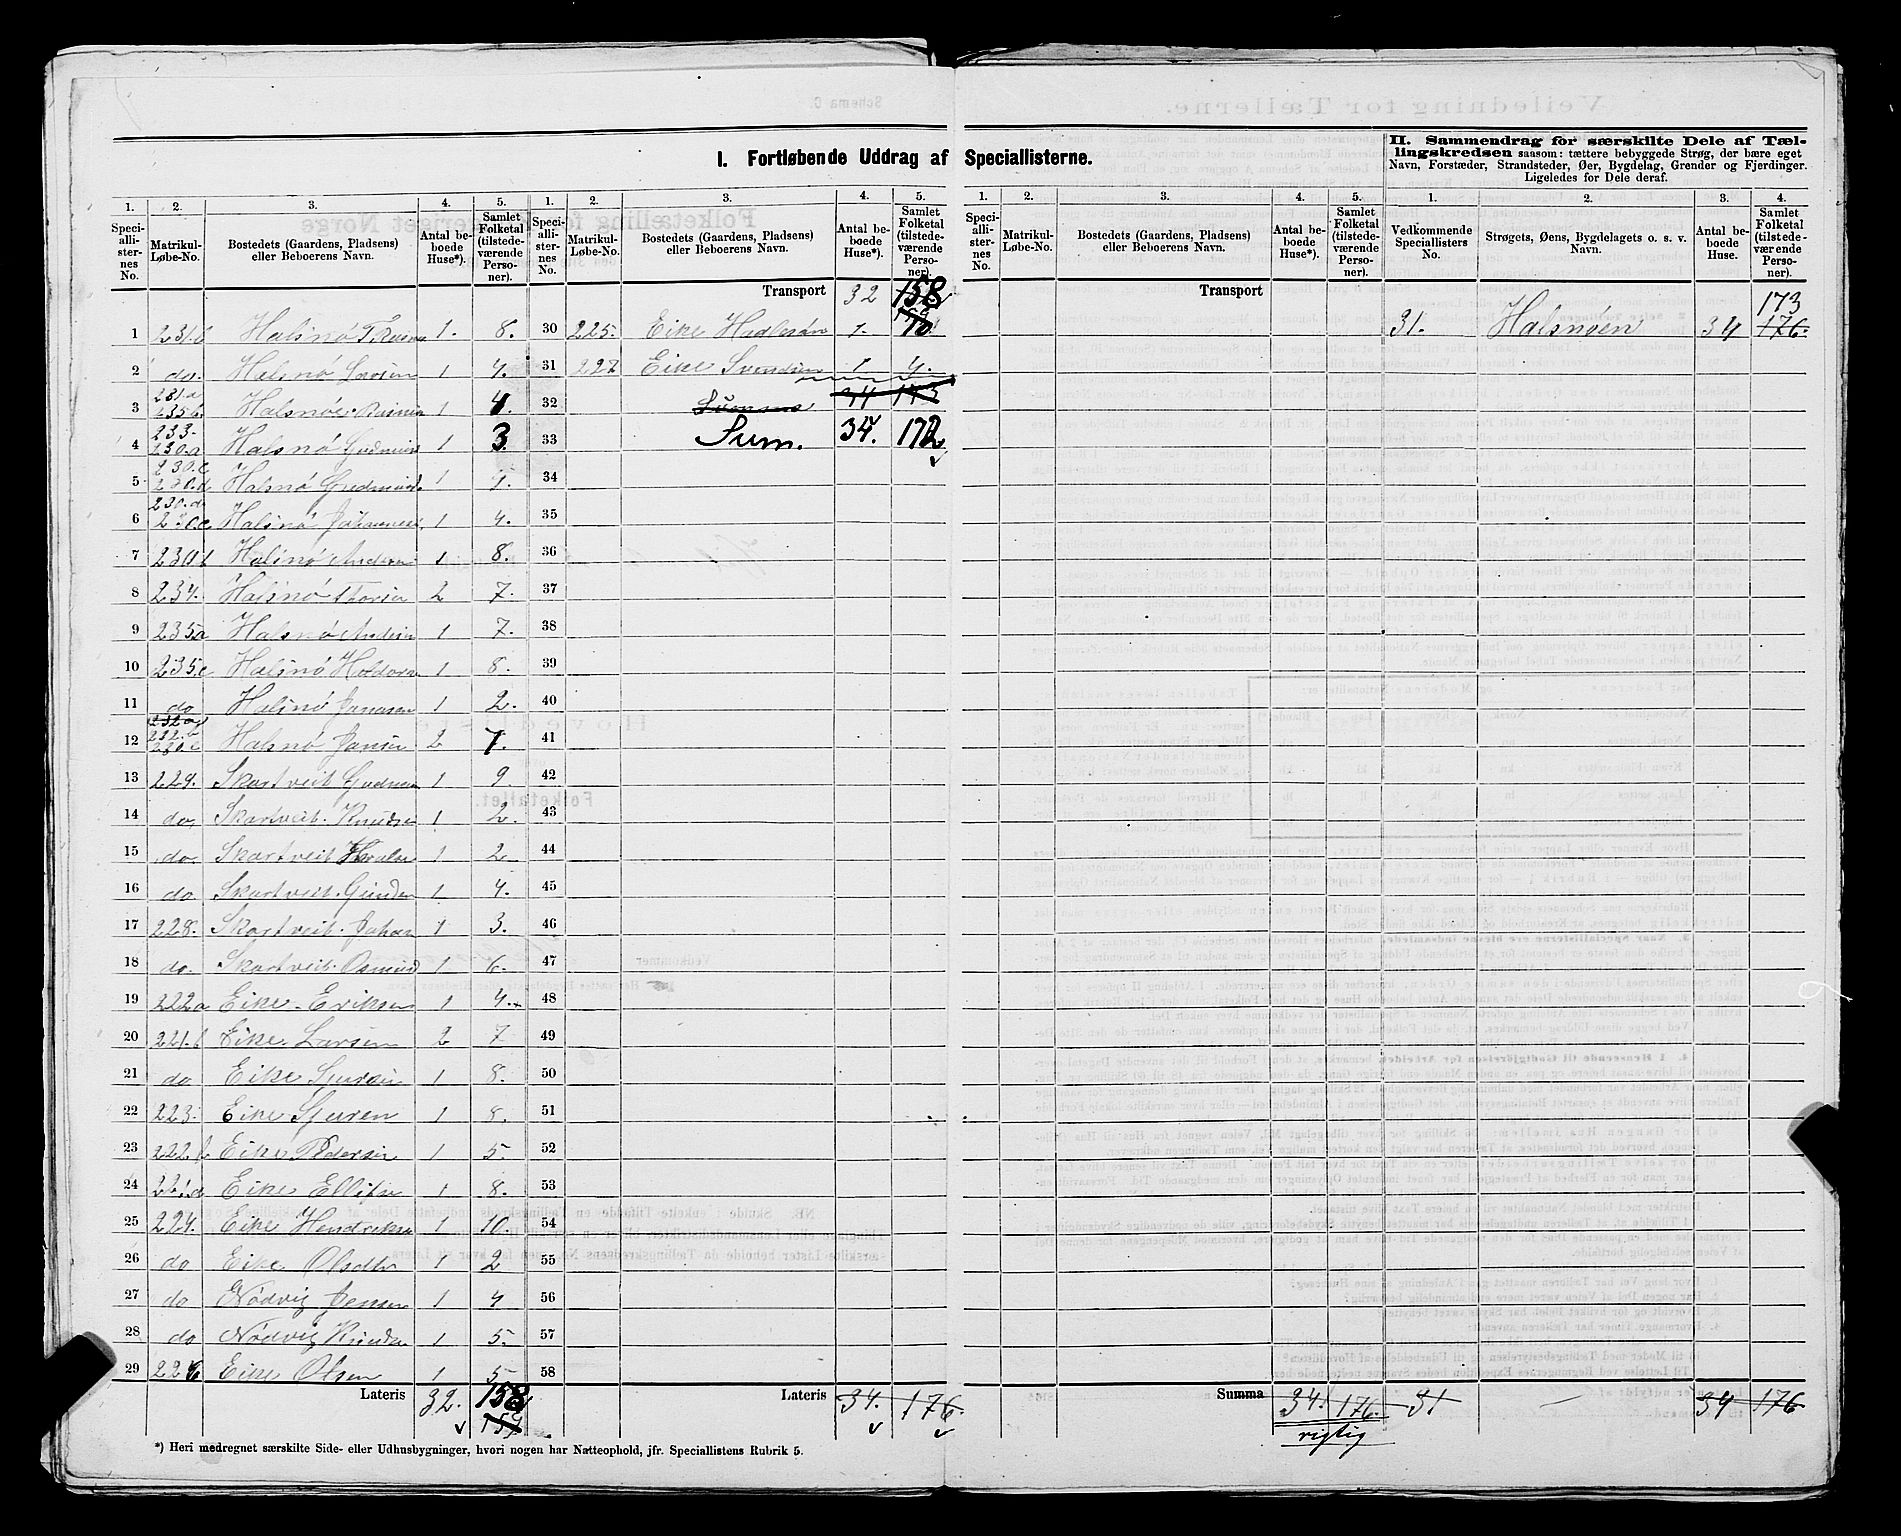 I. Fortløbende Uddrag af Speciallisterne.
II. Sammendrag for særskilte Dele af Tællingskredsen saasom: tættere bebyggede Strøg, der bære eget
Navn, Forstæder, Strandsteder, Øer, Bygdelag, Grender og Fjerdinger.
Ligeledes for Dele deraf.
1. 2. 3. 4. 5. 1. 2. 3. 4. 5. 1. 2. 3. 4. 5. 1. 2. 3. 4.
Specialisternes No. Matrikul-Løbe-No. Bostedets (Gaardens, Pladsens) eller Beboerens Navn. Antal beboede Huse*). Samlet Folketal (tilstedeværende Personer).
Vedkommende Speciallisters No. Strøgets, Øens, Bygdelagets o. s. v. Navn. Antal beboede Huse. Samlet Folketal (tilstedeværende Personer).
Transport 32 158
Transport
173
1 231b Halsnø T. Rasm 1. 8. 30 225. Eike Hadlesøn 1. 10
31. Halsnøen 34 176.
2 do. Halsnø Larsen 1 4. 31 227 Eike Svendsen 1 4.
3 231.a 235b. Halsnø Rasmus 1 4. 32 Summa 44 173
4 233. 230.a Halsnø Gudmund 1 3. 33 Sum. 34. 172
5 230.c 230.d Halsnø Gudmund 1 4. 34
6 230.d 230e Halsnø Johannes 1 4. 35
7 230b Halsnø Anders 1 8. 36
8 234. Halsnø Thorsen 2 7. 37
9 235a Halsnø Anders 1 7. 38
10 235c Halsnø Holdorn 1 8. 39
11 do Halsnø Jonasen 1 2. 40
12 232a 232.b 230c Halsnø Jansen 2 7. 41
13 229. Skartveit Gudmun 1 9 42
14 do, Skartveit. Knudsen 1 2. 43
15 do. Skartveit 1 2 44
16 do Skartveit. Gunder 1 4. 45
17 228. Skartveit. Johan 1 3. 46
18 do. Skartveit. Osmund 1 6. 47
19 222a Eike. Eriksen 1 4. 48
20 221.b Eike. Larsen 2 7 49
21 do Eike Sjursen 1 8. 50
22 223. Eike Sjuren 1 8. 51
23 222b Eike Pedersen 1 5. 52
24 221.a Eike Ellitsn 1 8. 53
25 224. Eike Hendriksen 1 10. 54
26 do Eike Olsdtr 1 2 55
27 do Nødvig Jensen 1 4 56
28 do Nødvig Knudsn 1 5. 57
29 226 Eike Olsen 1 5 58
Lateris 32. 158 159
Lateris 34. 176.
Summa 34. 176. 31 – 34 176
rigtig
*) Heri medregnet særskilte Side- eller Udhusbygninger, hvori nogen har Natteophold, jfr. Speciallistens Rubrik 5.